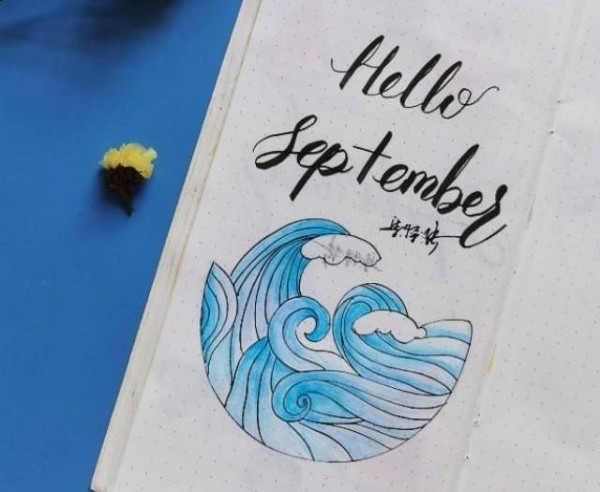 Hello
September